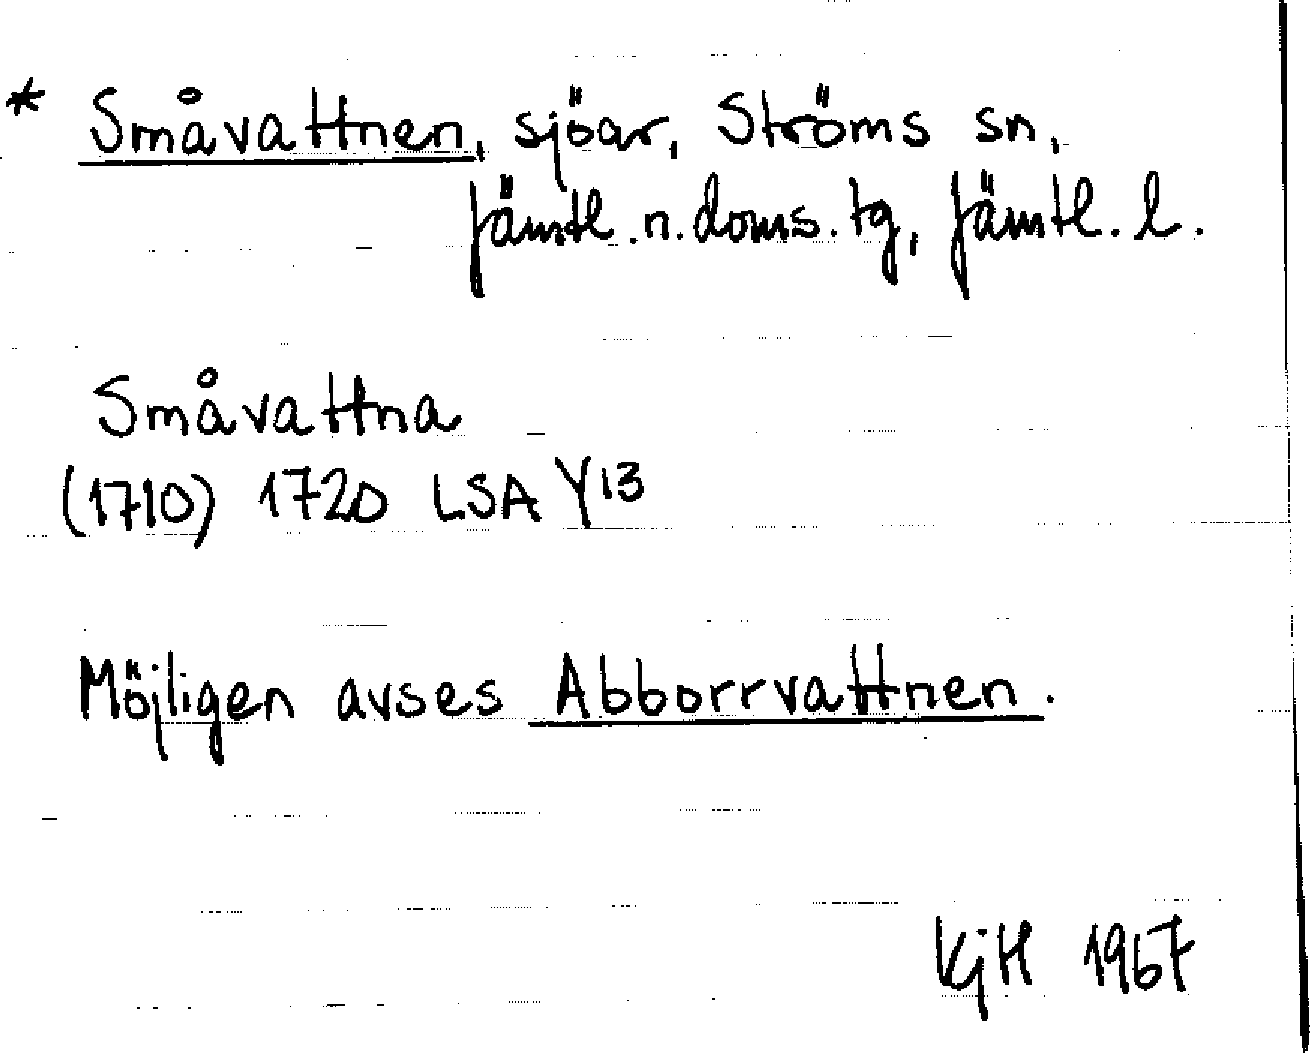 * Småvattnen, sjöar, Ströms sn,
Jämtl. n. doms. tg, Jämtl. l.
Småvattna
(1710) 1720 LSA Y13
Möjligen avses Abborrvattnen.
KjH 1967